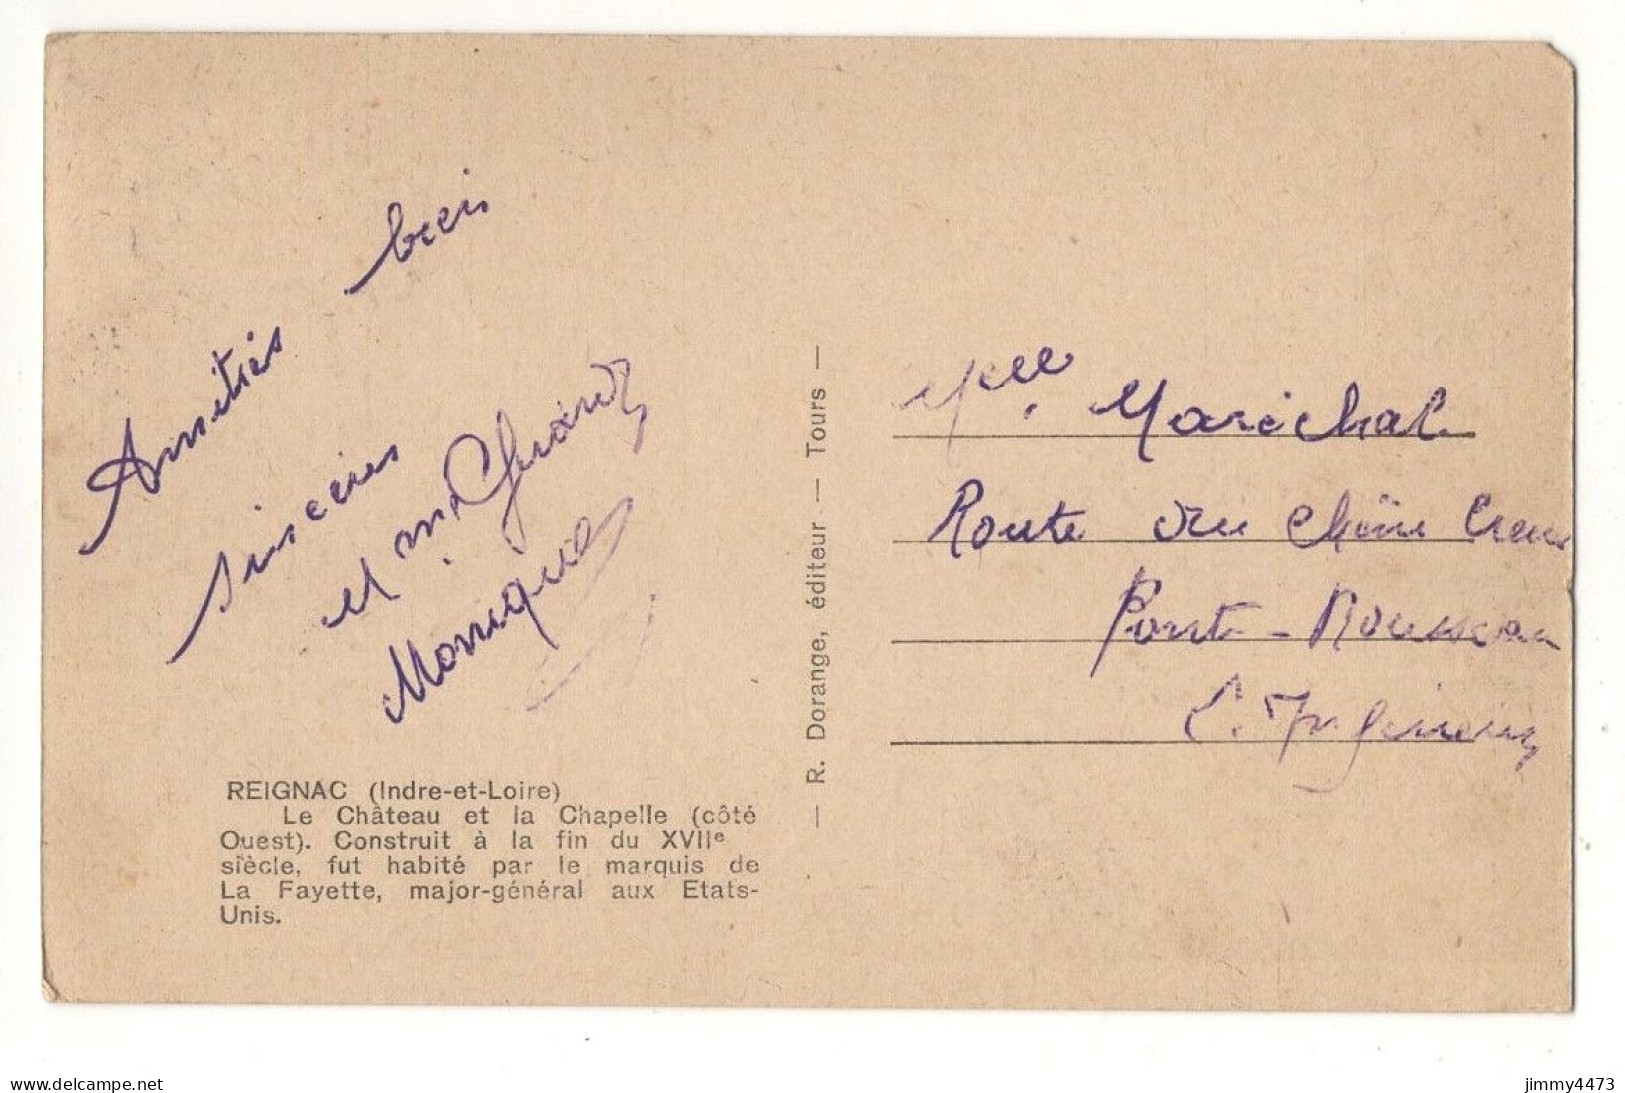 Amitiés bien
sincères
et
Monique
REIGNAC (Indre-et-Loire)
Le Château et la Chapelle (côté
Ouest). Construit à la fin du XVIIe
siècle, fut habité par le marquis de
La Fayette, major-général aux Etats-
Unis.
— R. Dorange, éditeur — Tours —
Melle. Maréchal
Route du Chêne Creux
Pont-Rousseau
L. Inférieure
www.delcampe.net
jimmy4473